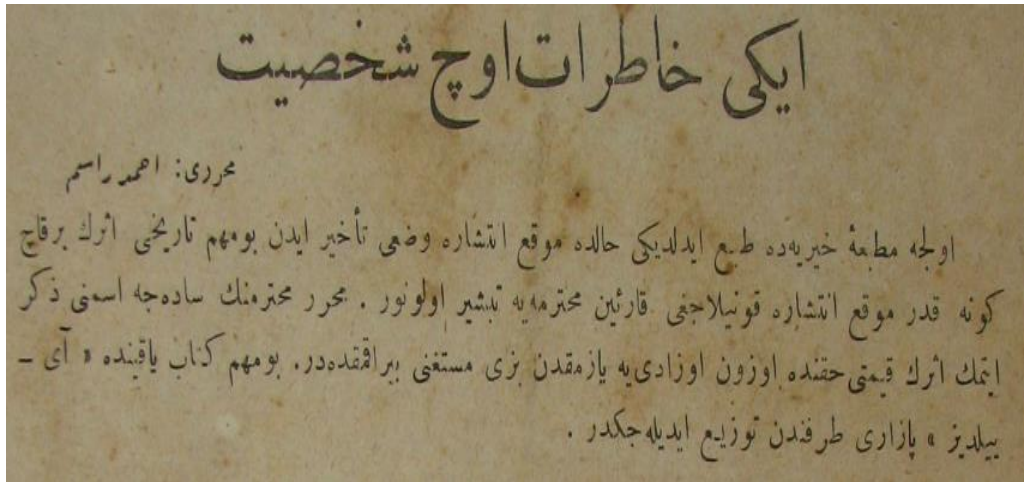 ایكی خاطرات اوچ شخصیت
محرری: احمد راسم
اولجه مطبعهٔ خیریه‌ده طبع ایدلدیكی حالده موقع انتشاره وضعی تأخیر ایدن بومهم تاریخی اثرك برقاچ
كونه قدر موقع انتشاره قونیلاجغی قارئین محترمه‌یه تبشیر اولونور . محرر محترمنك ساده‌جه اسمنی ذكر
ایتمك اثرك قیمتی حقنده اوزون اوزادی‌یه یازمقدن بزی مستغنی بیراقمقده‌در. بومهم كتاب یاقینده « آی ـ
ییلدیز » پازاری طرفندن توزیع ایدیله‌جكدر .